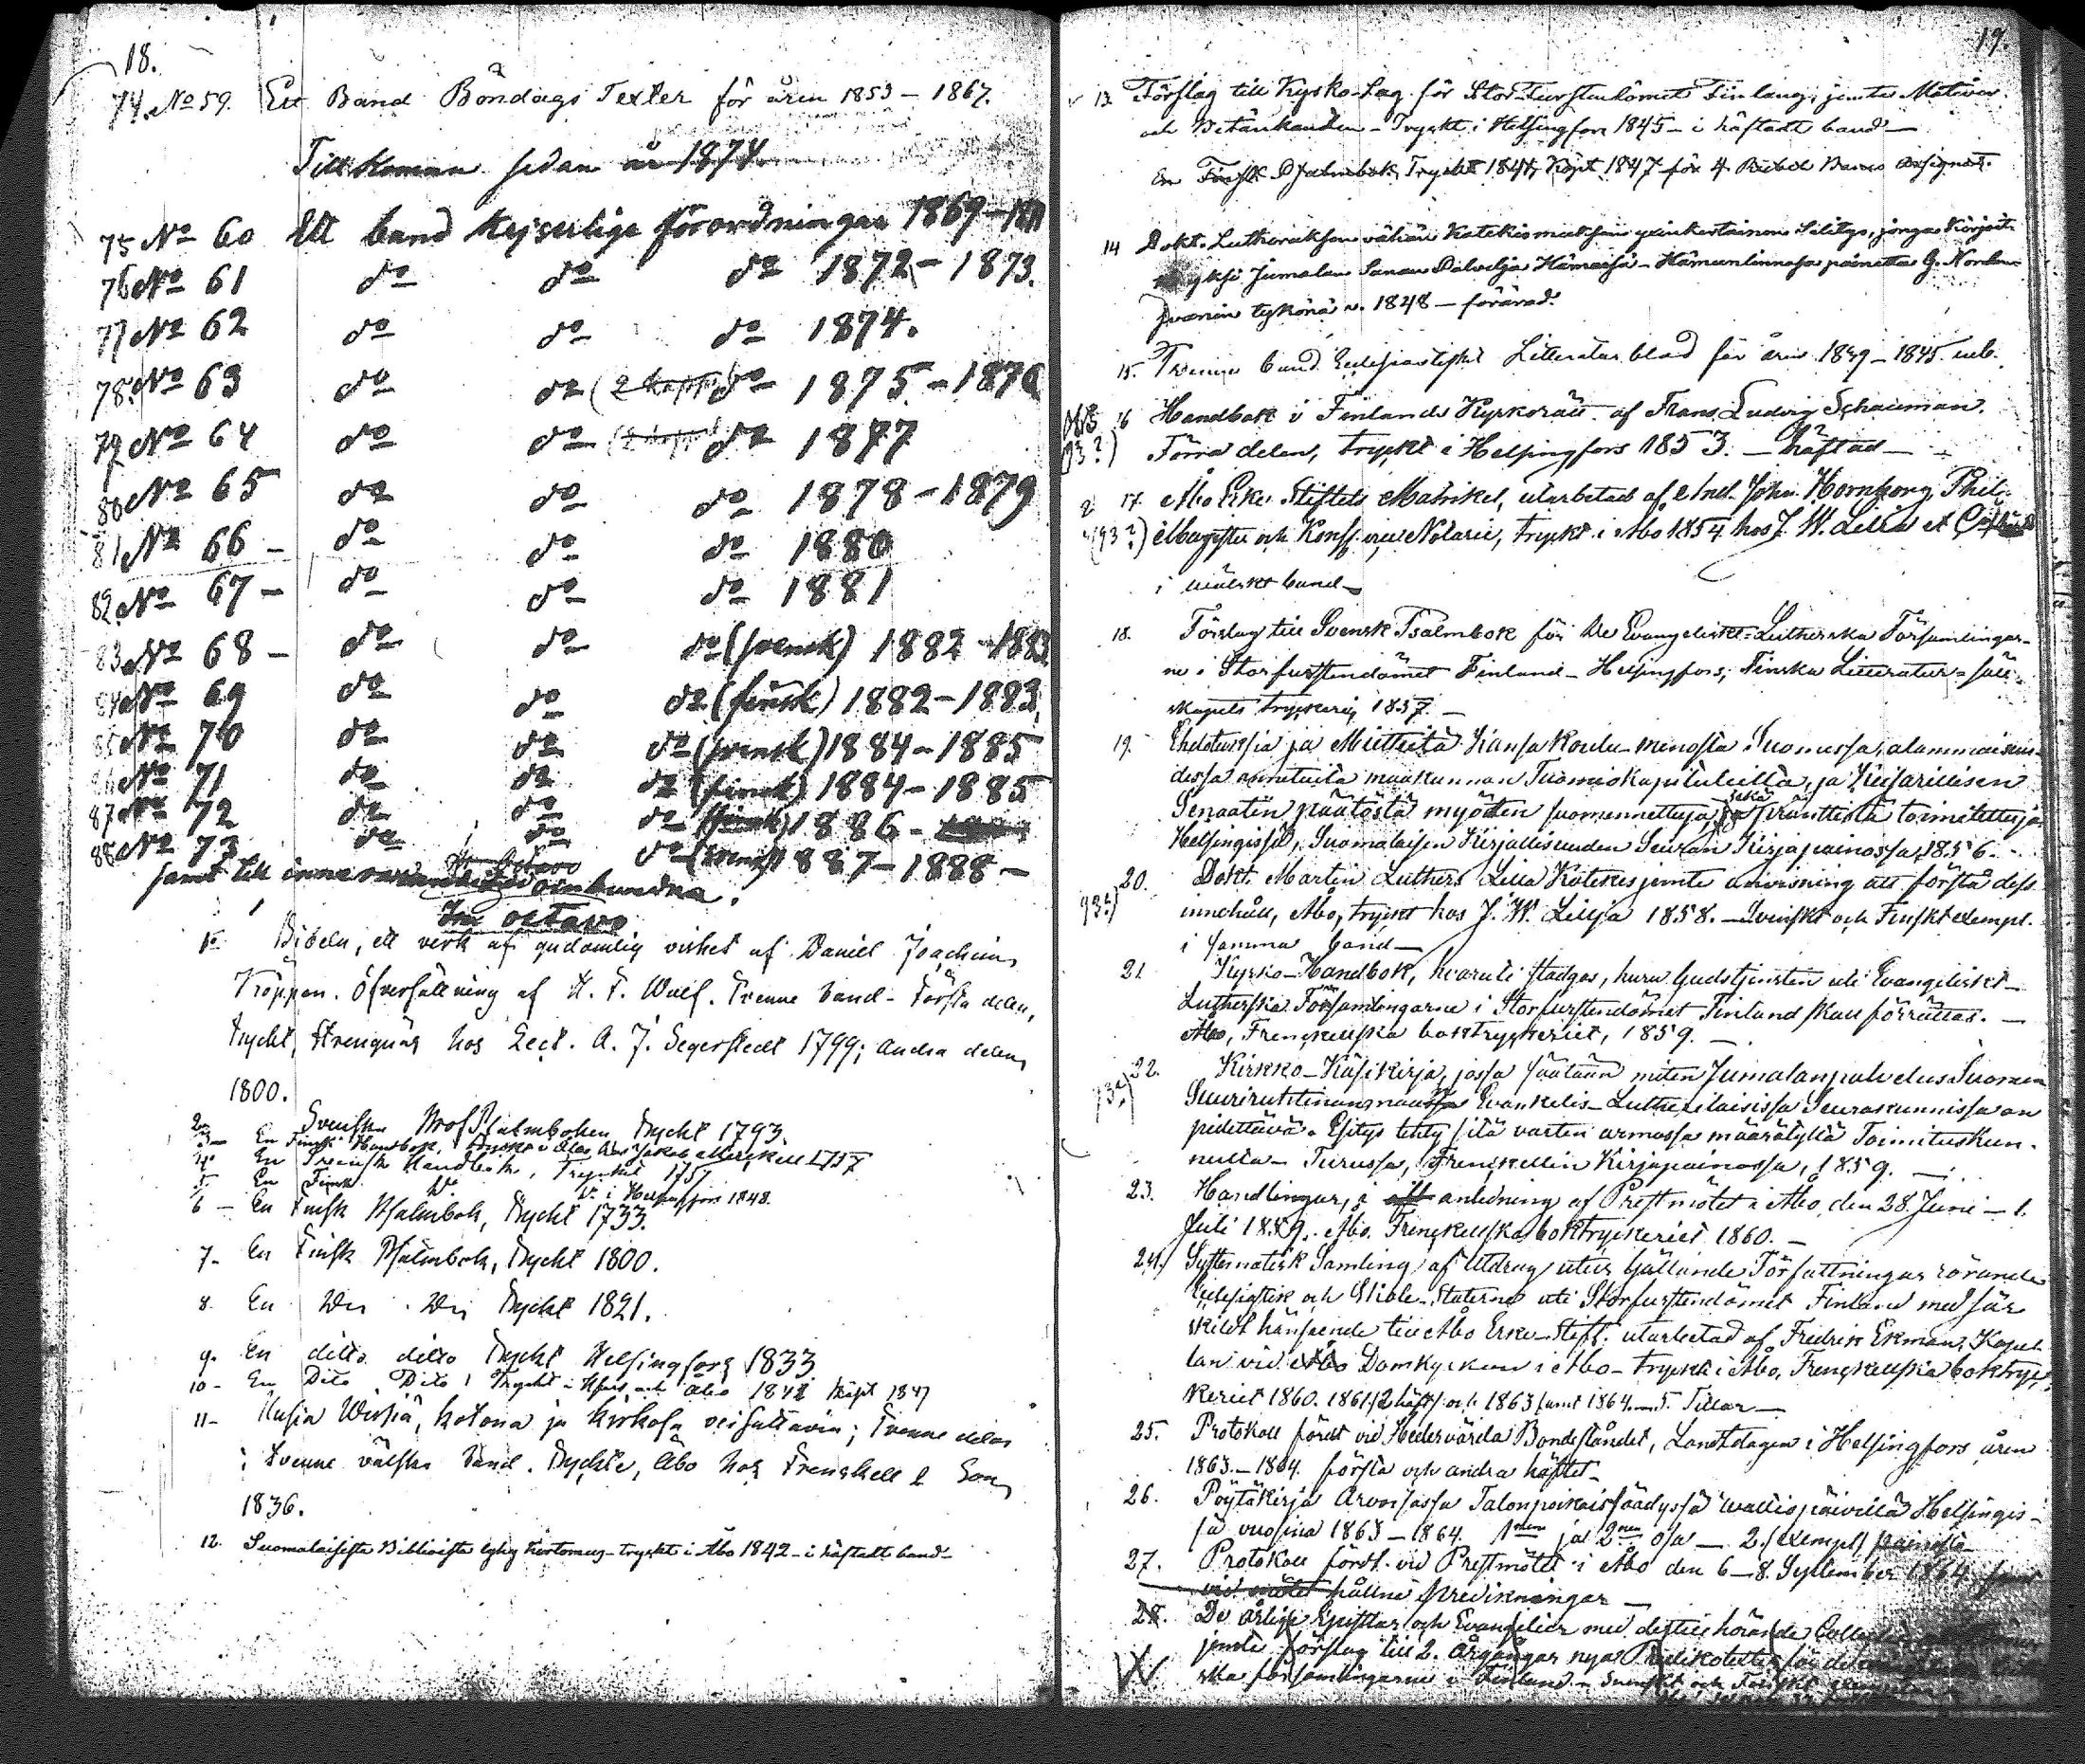 18.
74. No 59. Ett Band Böndags Texter för åren 1853 - 1867.
Tillkomna sedan år 1874
75 No 60 Ett band Kejserliga förordningar 1869-1871
76 No 61 do do do 1872 - 1873.
77 No 62 do do do 1874.
78. No 63 do do (2 do 1875 - 1876
79 No 64 do do do 1877
80 No 65 do do do 1878 - 1879
81 No 66 - do do do 1880
82 No 67 - do do do 1881
83 No 68 - do do do (svensk) 1882 - 1883
84 No 69 do do do (finsk) 1882 - 1883
85 No 70 do do do (svensk) 1884 - 1885
86 No 71 do do do (finsk) 1884 - 1885
87 No 72 do do do (finsk) 1886 -
88 No 73 do do do (svensk) 1887 - 1888 -
samt till oinbundna.
In octavo
1o Bibeln, ett verk af gudomlig vishet af Daniel Joachim
Köppen. Öfversättning af H. F. Wulf. Tvenne band - Första delen,
tryckt, Strengnäs hos Lect. A. J. Segerstedt 1799; Andra delen,
1800.
2. Svenska Prof Psalmboken tryckt 1793.
3 - En Finsk Handbok, tryckt i Åbo hos Jakob Merckell
4o En Svensk Handbok, Tryckt 1757
5. En Finsk do do i Helsingfors 1848.
6 - En Finsk Psalmbok, tryckt 1733.
7 - En Finsk Psalmbok, tryckt 1800.
8. En Do Do tryckt 1821.
9. En ditto ditto tryckt Helsingfors 1833.
10 - En Dito Dito Tryckt i Hfors och Åbo 1841 köpt 1847
11 - Uusia Wirsiä, kotona ja kirkosa veisattavia; Tvenne delar
i tvenne välska band. Tryckte, Åbo hos Frenckell & Son,
1836.
12. Suomalaisista Biblioista lyhy kertomus - tryckt i Åbo 1842 - i häftadt band -
19.
13. Förslag till Kyrko-Lag för Stor-Furstendömet Finland, jemte Motiver
och Betänkanden - Tryckt i Helsingfors 1845 - i häftadt band -
En Finsk Psalmbok, Tryckt 1847, Köpt 1847 för 4 Rubel Banco Assignat.
14 Dokt. Lutheruksen vähän Katekismuksen yxinkertainen Selitys, jonga Kirjoit-
yksi Jumalan Sanan Palvelja Hämeesä - Hämeenlinnasa painettu G.
tykönä v. 1848 - förärad.
15. Tvenne band Ecclesiastiskt Litteratur blad för åren 1839 - 1845. inb.
16 Handbok i Finlands Kyrkorätt af Frans Ludvig Schauman.
(93?) Förra delen, tryckt i Helsingfors 1853. - häftad -
17. Åbo Erke Stiftets Matrikel, utarbetad af And. Joh. Hornborg Phil.
(93?) Magister och Konsist. Notarie, tryckt i Åbo 1854 hos J. W. Lillia et C
i välskt band -
18. Förslag till Svensk Psalmbok för De Evangeliskt-Lutherska Församlingar-
ne i Storfurstendömet Finland - Helsingfors, Finska Litteratur-säll-
skapets tryckeri, 1857. -
19. Ehdotuksia ja Mietteitä Kansakoulu-menosta Suomessa, alammaisuu-
dessa annetuita maakunnan Tuomiokapituleilta, ja Keisarillisen
Senaatin päätöstä myöden suomennettuja sekä pränttistä toimitettuja
Helsingissä, Suomalaisen Kirjallisuuden Seuran Kirjapainossa, 1856. -
20. Dokt. Martin Luthers Lilla Katekes jemte anvisning att förstå dess
93?) innehåll, Åbo, tryckt hos J. W. Lillja 1858. - Svenskt och Finskt exempl.
i samma band -
21 Kyrko-Handbok, hvaruti stadgas, huru Gudstjensten uti Evangeliskt-
Lutherska Församlingarne i Storfurstendömet Finland skall förrättas. -
Åbo, Frenckellska boktryckeriet, 1859. -
22. Kirkko-Käsikirja, jossa säätään miten Jumalanpalvelus Suomen
93?) Suuriruhtinanmaassa Evankelis-Lutherilaisissa Seurakunnissa on
pidettävä. Esitys tehty sitä varten armossa määrätyltä Toimituskun-
nalta - Turussa, Frenckellin Kirjapainossa, 1859. -
23. Handlingar, i anledning af Prestmötet i Åbo, den 28. Juni - 1.
Juli 1859. Åbo. Frenckellska boktryckeriet 1860. -
24. Systematisk Samling af Utdrag utur Gällande Författningar rörande
Ecclesiastik och Civile-Staterna uti Storfurstendömet Finland med sär
skildt hänseende till Åbo Erke-Stift. utarbetad af Fredrik Ekman, Kapel-
lan vid Åbo Domkyrkan i Åbo - tryckt i Åbo, Frenckellska boktryc-
keriet 1860. 1861. (2 häft) och 1863 samt 1864. - 5. Delar -
25. Protokoll fördt vid Hedervärda Bondeståndet, Landtdagen i Helsingfors åren
1863. - 1864. första och andra häftet -
26. Pöytäkirja Arvoisassa Talonpoikaissäädyssä waltiopäivillä Helsingis-
sä vuosina 1863 - 1864. 1nen ja 2nen osa - 2. (exempl)
27. Protokoll fördt vid Prestmötet i Åbo den 6 - 8. September 1864
vid mötet hållne predikningar -
28. De årliga Epistlar och Evangelier med dertill hörande
jemte förslag till 2. Årgångar nya Predikotexter för de
ska församlingarne i Finland - Svenskt och Finskt